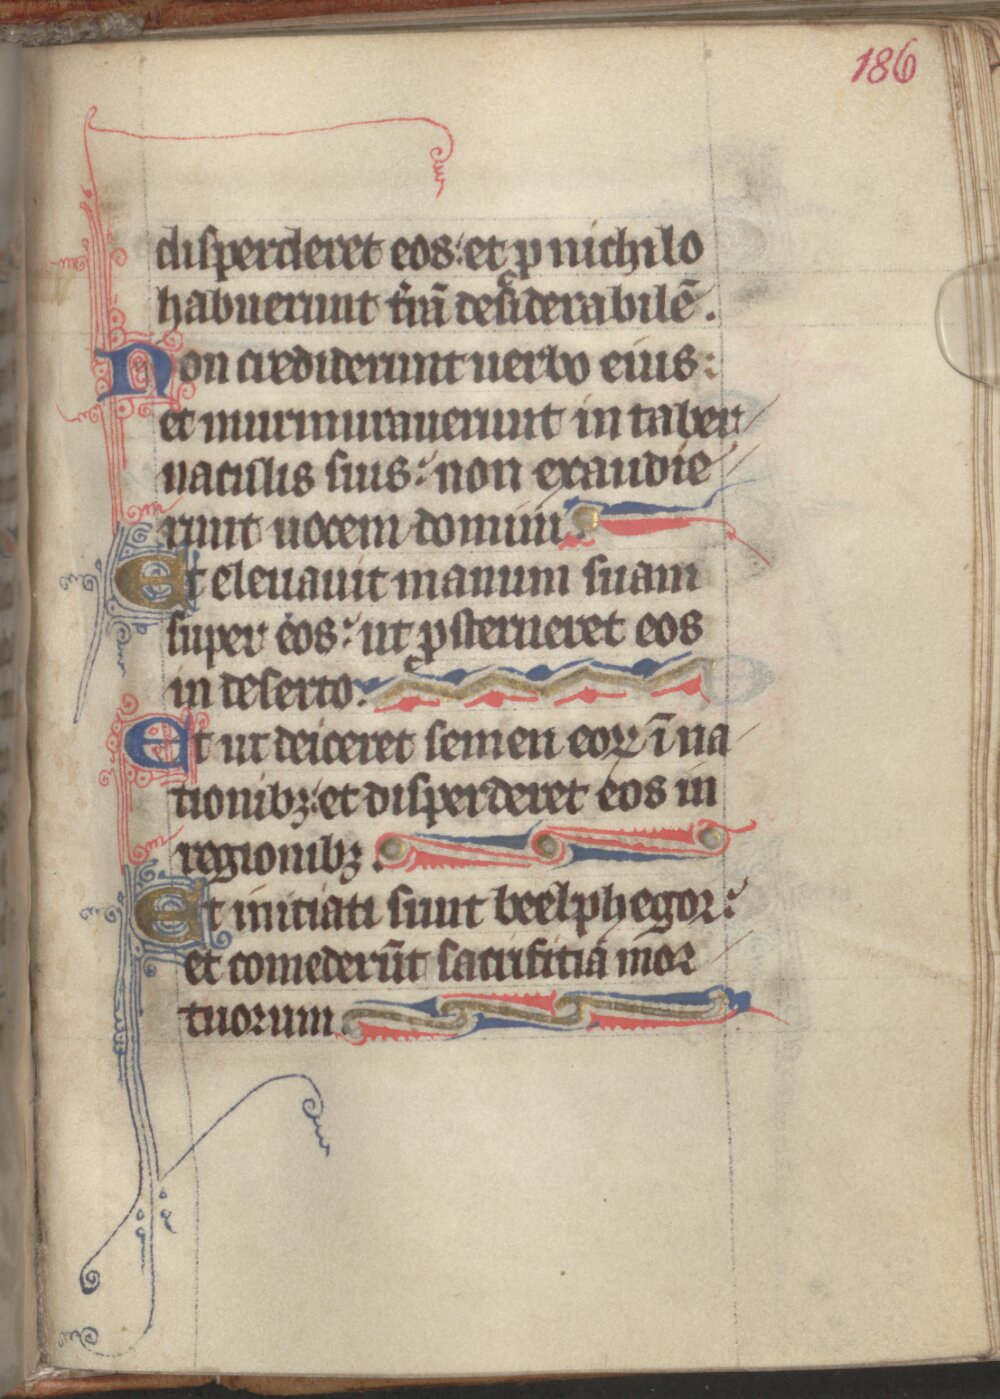 186
disperderet eos: et ꝓ nichilo
habuerunt t̃rã desiderabilẽ.
Non crediderunt uerbo eius:
et murmurauerunt in taber
naculis suis: non exaudie
runt uocem domini.
Et eleuauit manum suam
super eos: ut ꝓsterneret eos
in deserto.
Et ut deiceret semen eoꝝ ĩ na
tionibꝫ: et disperderet eos in
regionibꝫ.
Et initiati sunt beelphegor:
et comederũt sacrifitia mor
tuorum